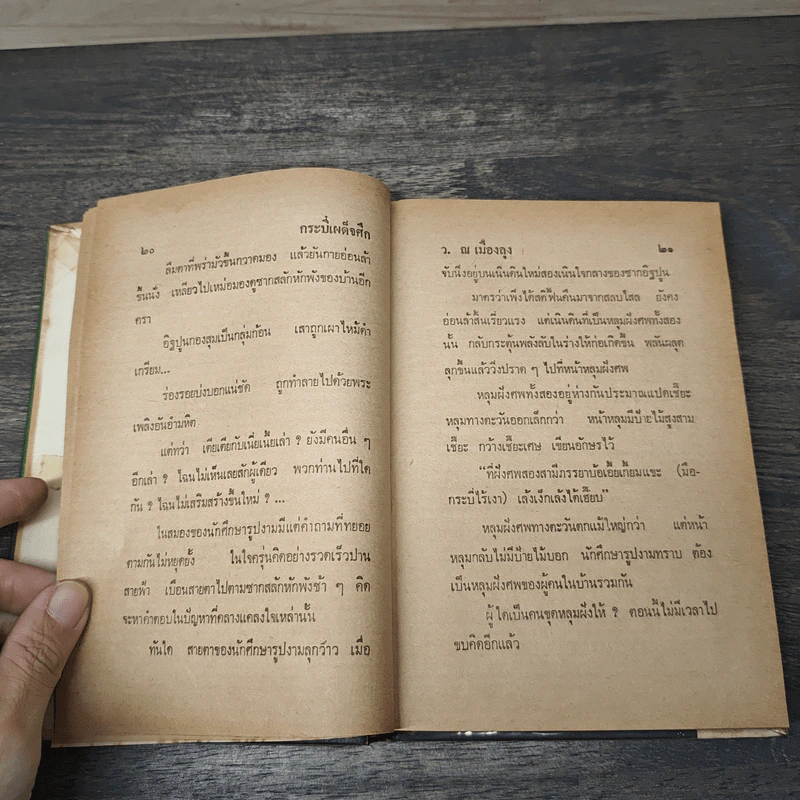 ๒๐
กระบี่เผด็จศึก
ลืมตาที่พร่ามัวขึ้นกวาดมอง แล้วยันกายอ่อนล้า
ขึ้นนั่ง เหลียวไปเหม่อมองดูซากสลักหักพังของบ้านอีก
ครา
อิฐปูนกองสุมเป็นกลุ่มก้อน เสาถูกเผาไหม้ดำ
เกรียม...
ร่องรอยบ่งบอกแน่ชัด ถูกทำลายไปด้วยพระ
เพลิงอันอำมหิต
แต่ทว่า เตียเตียกับเนี่ยเนี้ยเล่า ? ยังมีคนอื่น ๆ
อีกเล่า ? ไฉนไม่เห็นเลยสักผู้เดียว พวกท่านไปที่ใด
กัน ? ไฉนไม่เสริมสร้างขึ้นใหม่ ? ...
ในสมองของนักศึกษารูปงามมีแต่คำถามที่ทยอย
ตามกันไม่หยุดยั้ง ในใจครุ่นคิดอย่างรวดเร็วปาน
สายฟ้า เบือนสายตาไปตามซากสลักหักพังช้า ๆ คิด
จะหาคำตอบในปัญหาที่คลางแคลงใจเหล่านั้น
ทันใด สายตาของนักศึกษารูปงามลุกวาว เมื่อ
ว. ณ เมืองลุง
๒๑
จับนิ่งอยู่บนเนินดินใหม่สองเนินใจกลางของซากอิฐปูน
มาตรว่าเพิ่งได้สติฟื้นคืนมาจากสลบไสล ยังคง
อ่อนล้าสิ้นเรี่ยวแรง แต่เนินดินที่เป็นหลุมฝังศพทั้งสอง
นั้น กลับกระตุ้นพลังลับในร่างให้ก่อเกิดขึ้น พลันผลุด
ลุกขึ้นแล้ววิ่งปราด ๆ ไปที่หน้าหลุมฝังศพ
หลุมฝังศพทั้งสองอยู่ห่างกันประมาณแปดเชี๊ยะ
หลุมทางตะวันออกเล็กกว่า หน้าหลุมมีป้ายไม้สูงสาม
เชี๊ยะ กว้างเชี๊ยะเศษ เขียนอักษรไว้
“ที่ฝังศพสองสามีภรรยาบ้อเอี้ยเกี้ยมแขะ (มือ-
กระบี่ไร้เงา) เล้งเง็กเล้งไต้เฮี๊ยบ”
หลุมฝังศพทางตะวันตกแม้ใหญ่กว่า แต่หน้า
หลุมกลับไม่มีป้ายไม้บอก นักศึกษารูปงามทราบ ต้อง
เป็นหลุมฝังศพของผู้คนในบ้านรวมกัน
ผู้ใดเป็นคนขุดหลุมฝังให้ ? ตอนนี้ไม่มีเวลาไป
ขบคิดอีกแล้ว